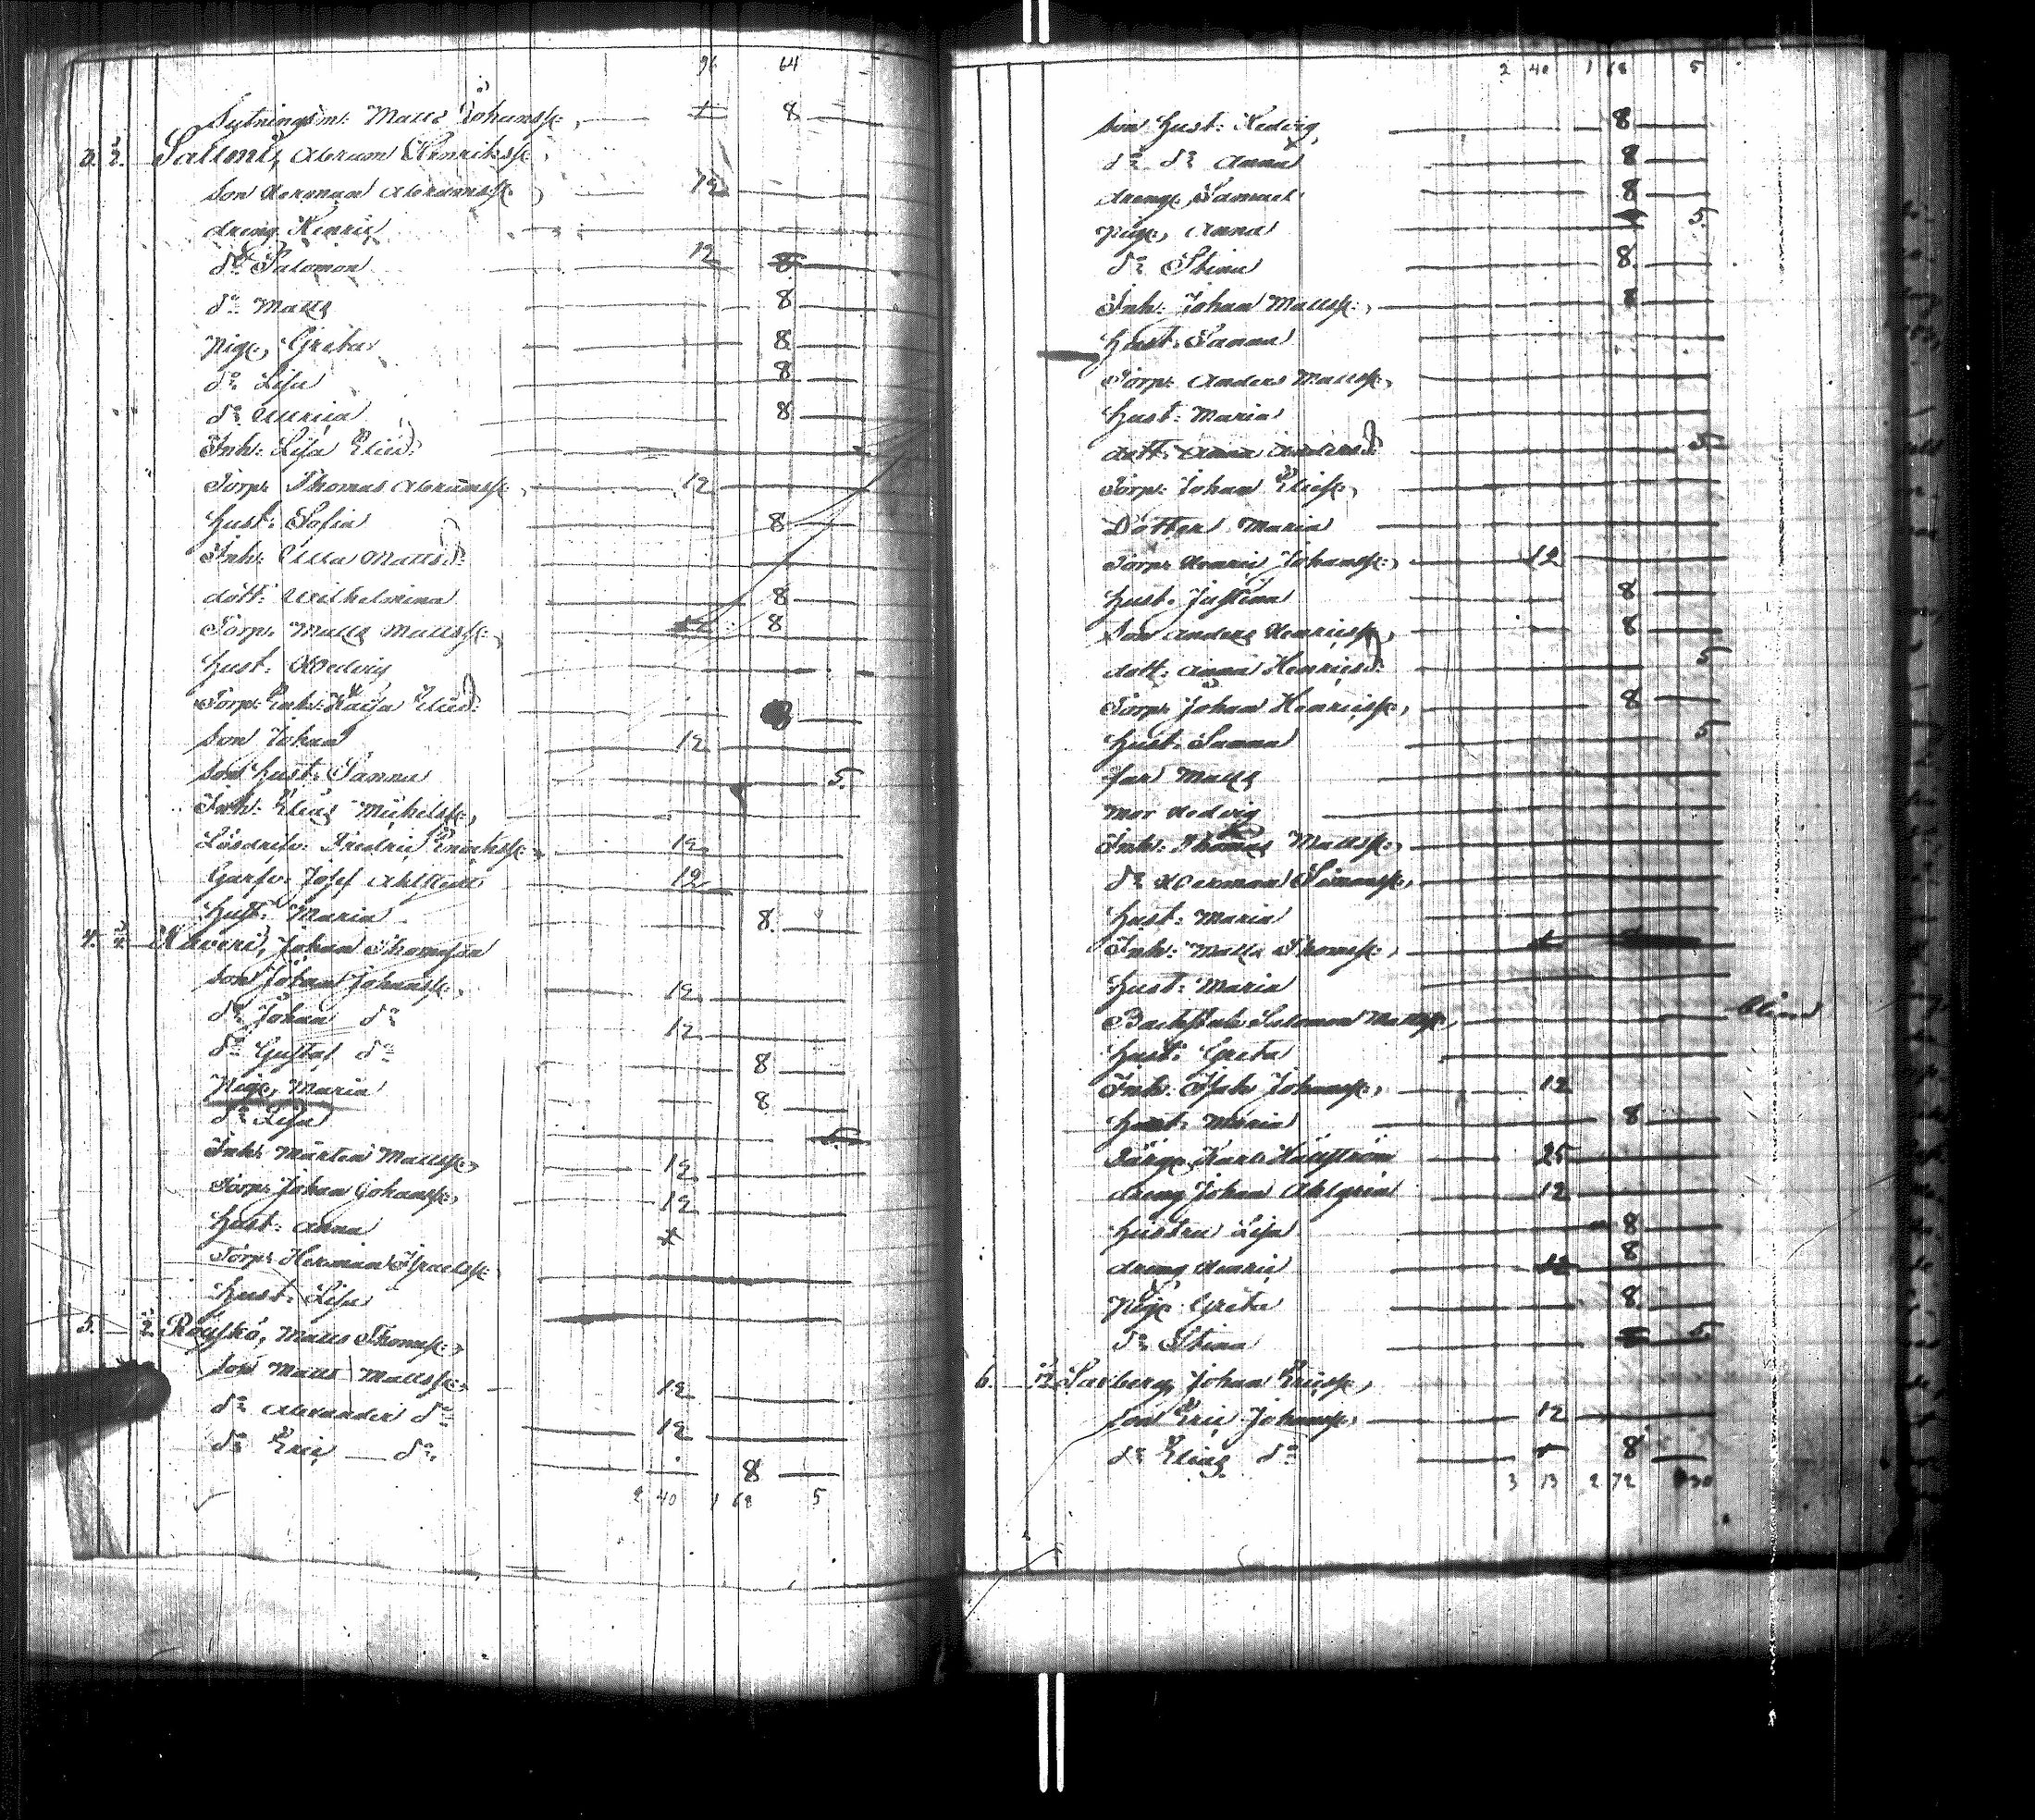 96 64
Sytningsm: Matts Johanss:, + 8
3. 1/2. Salloni, Abram Henrikss:
son Herman Abramss:, 12
dreng Henric
do Salomon 12 8
do Matts 8
Pig:, Greta 8
do Lisa 8
do Maria 8
Inh: Lisa Eliæd:
Torp: Thomas Abramss:, 12
Hust: Sofia 8
Inh: Ulla Mattsd:
dott: Wilhelmina 8
Torp: Matts Mattss:, 12 8
Hust: Hedvig
Torp: Enk: Kaisa Eliæd: 8
son Johan 12
sons Hust: Sanna 5.
Inh: Elias Michelss:,
Lösdrifv: Fredric Enochss:, 12
Garfv: Josef Ahlstedt 12
Hust: Maria 8.
4. 3/4. Kaveri, Johan Thomasson
son Johan Johanss:, 12
do Johan do 12
do Gustaf do 8
Pige, Maria 8
do Lisa 5.
Inh: Mårten Mattss:, 12
Torp: Johan Johanss:, 12
Hust: Anna +
Torp: Herman Israelss:
Hust: Lisa
5. 1/2. Rouskö, Matts Thomss:,
son Matts Mattss:, 12
do Alexander do 12
do Eric do. 8
2 40 1 68 5
2 40 1 68 5
son Hust: Hedvig 8
do do Anna 8
drenge, Samuel 8
Pige, Anna 5.
do Stina 8
Inh: Johan Mattss:, 8
Hust: Sanna
Torp: Anders Mattss:,
Hust: Maria
dott: Anna Andersd: 5
Torp: Johan Eliæss:,
Dotter Maria
Torp: Henric Johanss:, 12
Hust: Justina 8
Son Anders Henricss:, 8
dott: Anna Henricsd: 5
Torp: Johan Henricss:, 8
Hust: Sanna 5
far Matts
Mor Hedvig
Inh: Thomas Mattss:,
do Herman Simonss:,
Hust: Maria
Inh: Matts Thomss:, +
Hust: Maria
Backst: Salomon Mattss:, blind
Hust: Greta
Inh: Isak Johanss:, 12
Hust: Maria 8
Färge, Karl Hällström 25
dreng Johan Ahlgren 12
Hustru Lisa 8
dreng Henric 12 8
Pige Greta 8
do Stina 5
6. 1/2 Saxberg, Johan Ericss:,
son Eric Johanss:, 12
do Elias do + 8
3 13 2 72 30